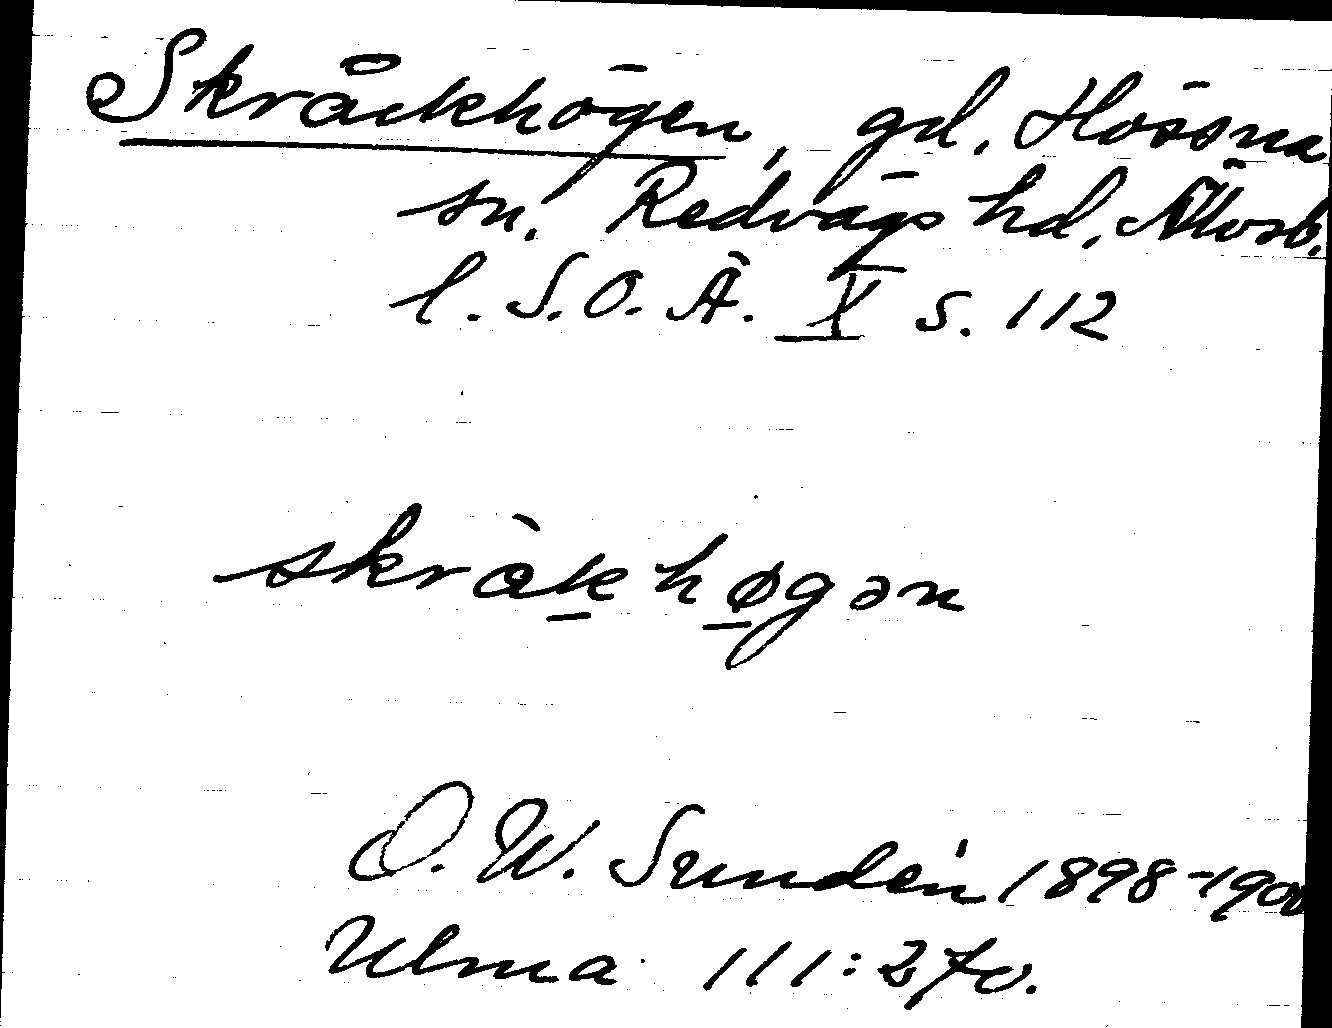 Skråckhögen, gd, Hössna
sn. Redvägs hd, Älvsb.
l. S.O.Ä. X s. 112
skràkhøgən
O. W. Sundén 1898-1900
Ulma 111:270.